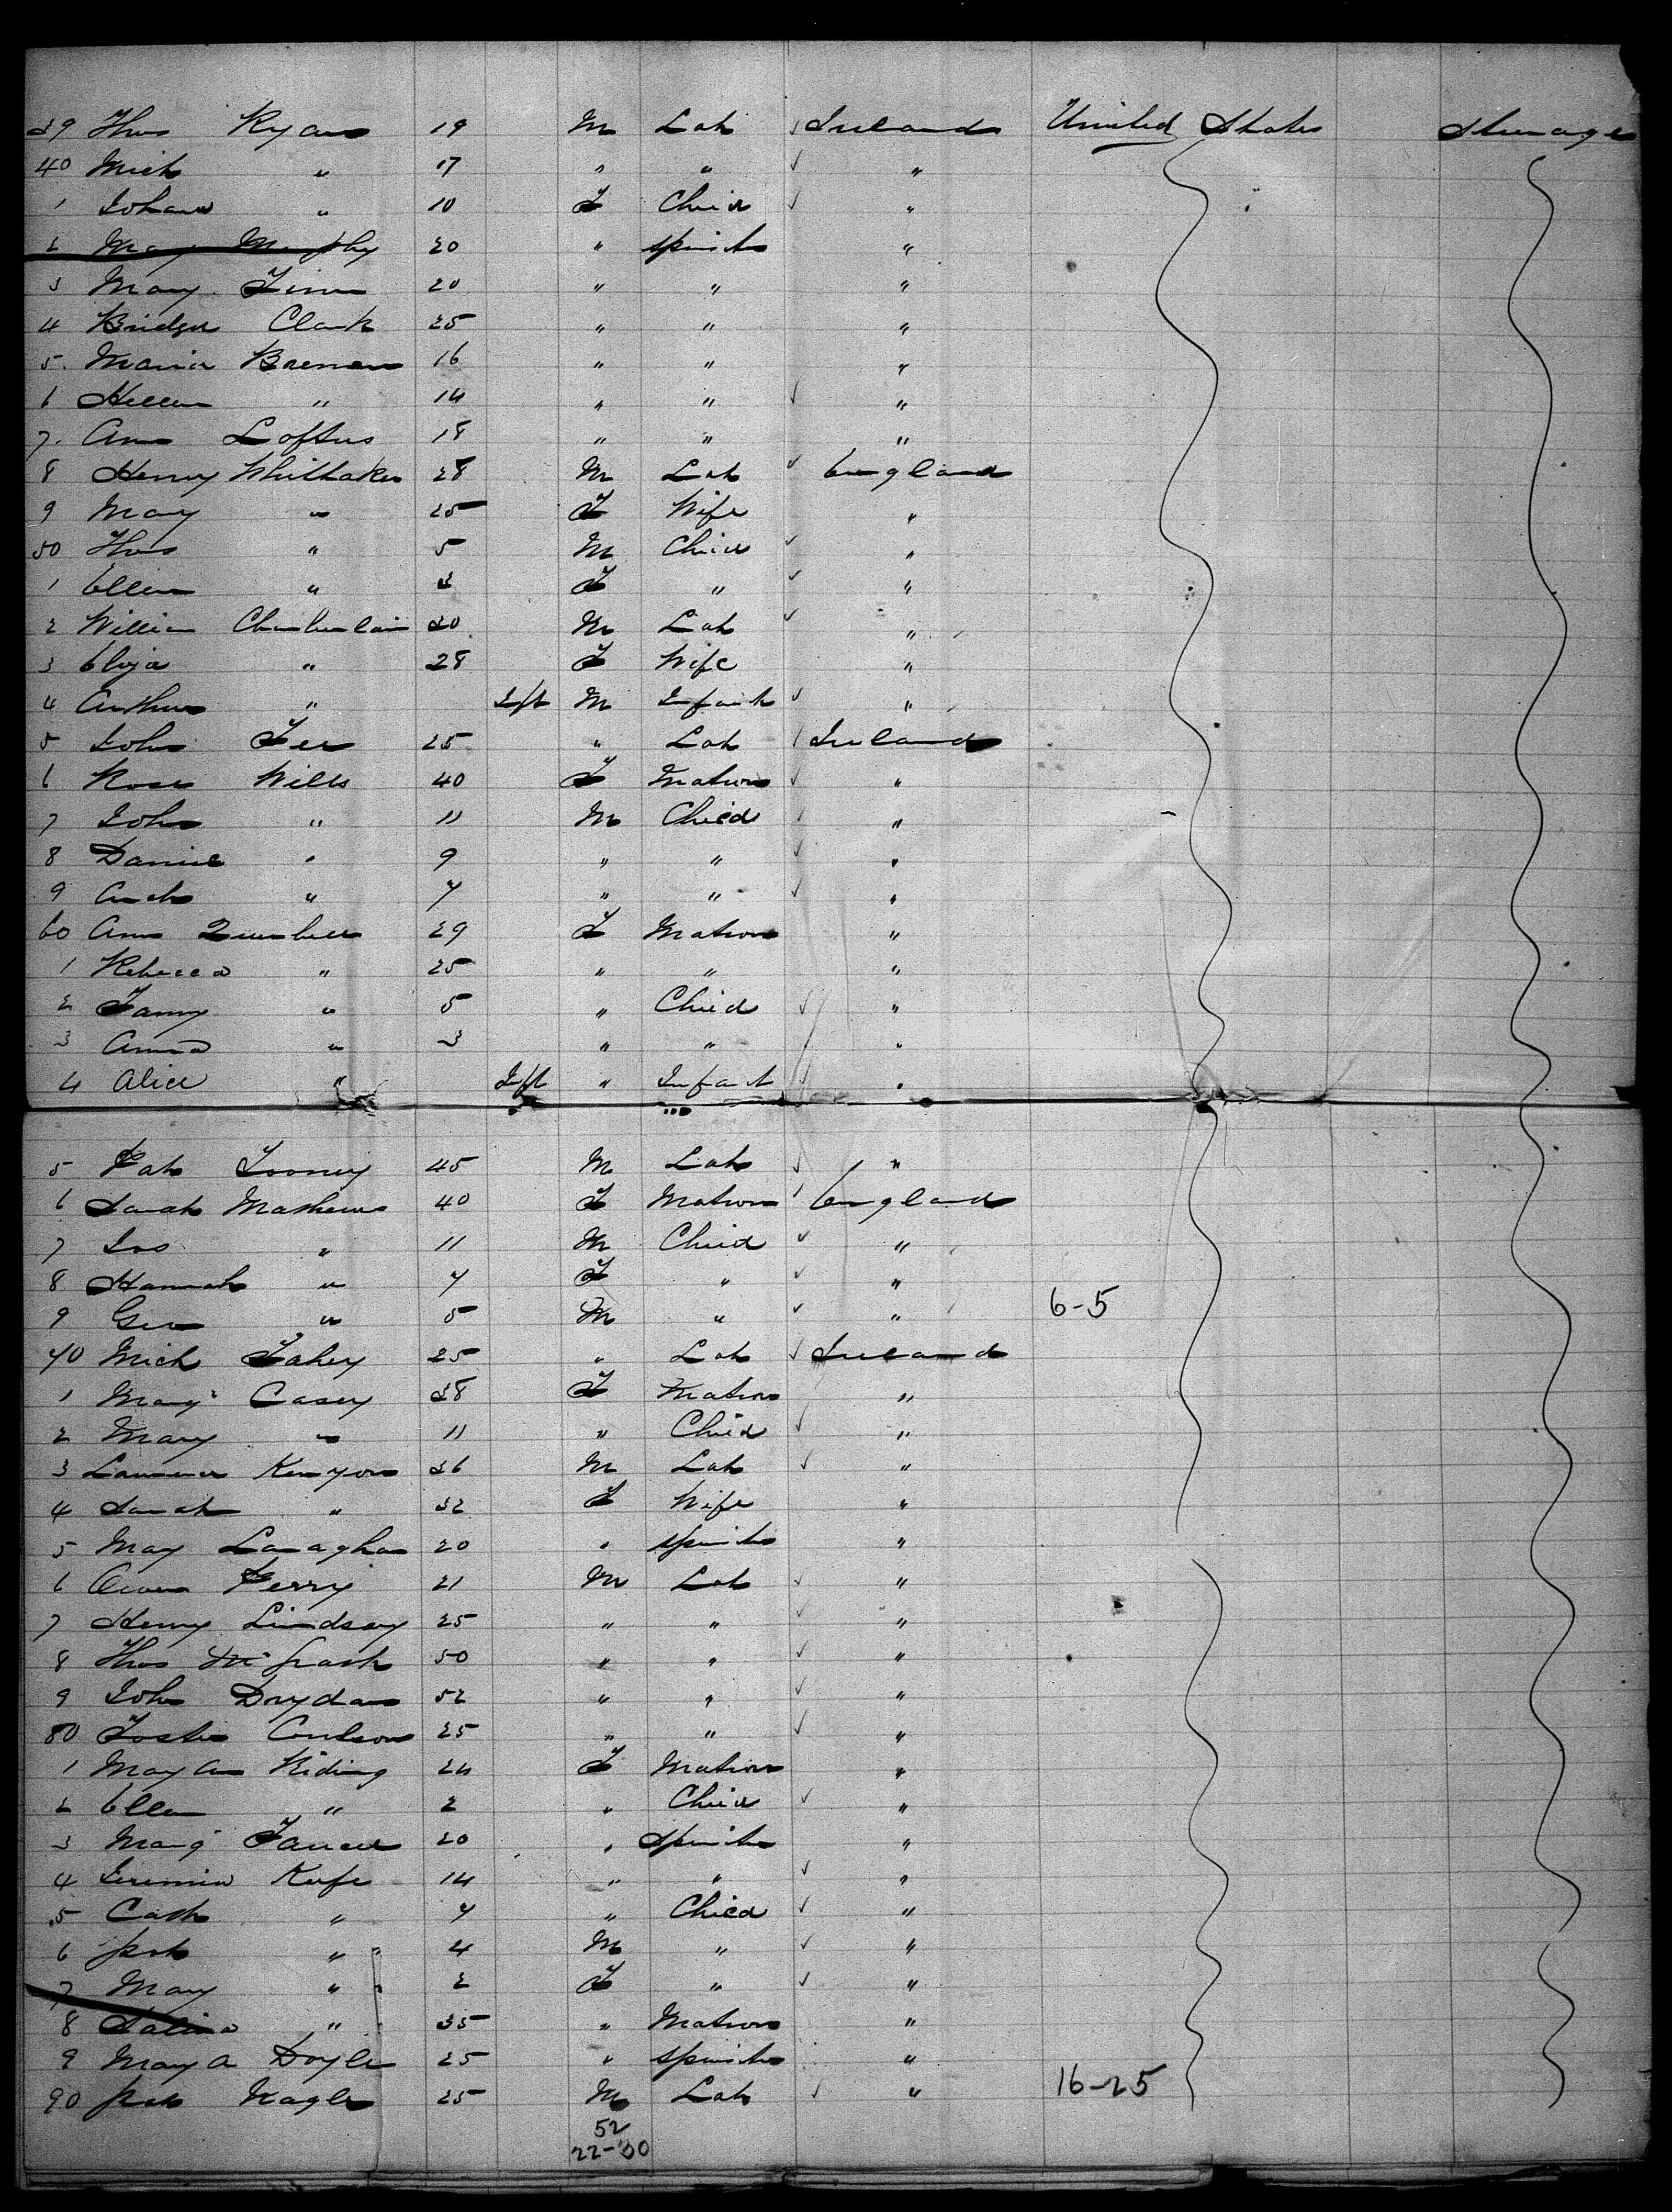 39 Thos Ryan 19 M Lab Ireland United States Steerage
40 Mich " 17 " " "
1 Johana " 10 F Child "
2 May Murphy 20 " Spinster "
3 Mary Finn 20 " " "
4 Bridget Clark 25 " " "
5. Maria Brennan 16 " " "
6 Hellen " 14 " " "
7. Ann Loftus 18 " " "
8 Henry Whittaker 28 M Lab England
9 Mary " 25 F Wife "
50 Thos " 5 M Child "
1 Ellen " 3 F " "
2 William Chamberlain 30 M Lab "
3 Eliza " 28 F Wife "
4 Arthur " Inft M Infant "
5 John Fee 25 " Lab Ireland
6 Rose Wills 40 F Matron "
7 John " 11 M Child "
8 Daniel " 9 " " "
9 Arch " 7 " " "
60 Ann 29 F Matron "
1 Rebecca " 25 " " "
2 Fanny " 5 " Child "
3 Anna " 3 " " "
4 Alice " Inft " Infant "
5 Pat Toomey 45 M Lab "
6 Sarah Mathews 40 F Matron England
7 Jas " 11 M Child "
8 Hannah " 7 F " "
9 Geo " 5 M " " 6-5
70 Mich Fahey 25 " Lab Ireland
1 Marg Casey 38 F Matron "
2 Mary " 11 " Child "
3 Lawrence Kenyon 36 M Lab "
4 Sarah " 32 F Wife "
5 May Lanaghan 20 " Spinster "
6 Owen Perry 21 M Lab "
7 Henry Lindsay 25 " " "
8 Thos McGrath 50 " " "
9 John Drydan 52 " " "
80 Foster Coulson 25 " " "
1 Mary Ann Riding 24 F Matron "
2 Ellen " 2 " Child "
3 Marg 20 " Spinster "
4 Jeremia Keefe 14 " " "
5 Cath " 7 " Child "
6 Pat " 4 M " "
7 May " 2 F " "
8 " 35 " Matron "
9 Mary A Doyle 25 " Spinster "
90 Pat Nagle 25 M Lab " 16-25
52
22-30